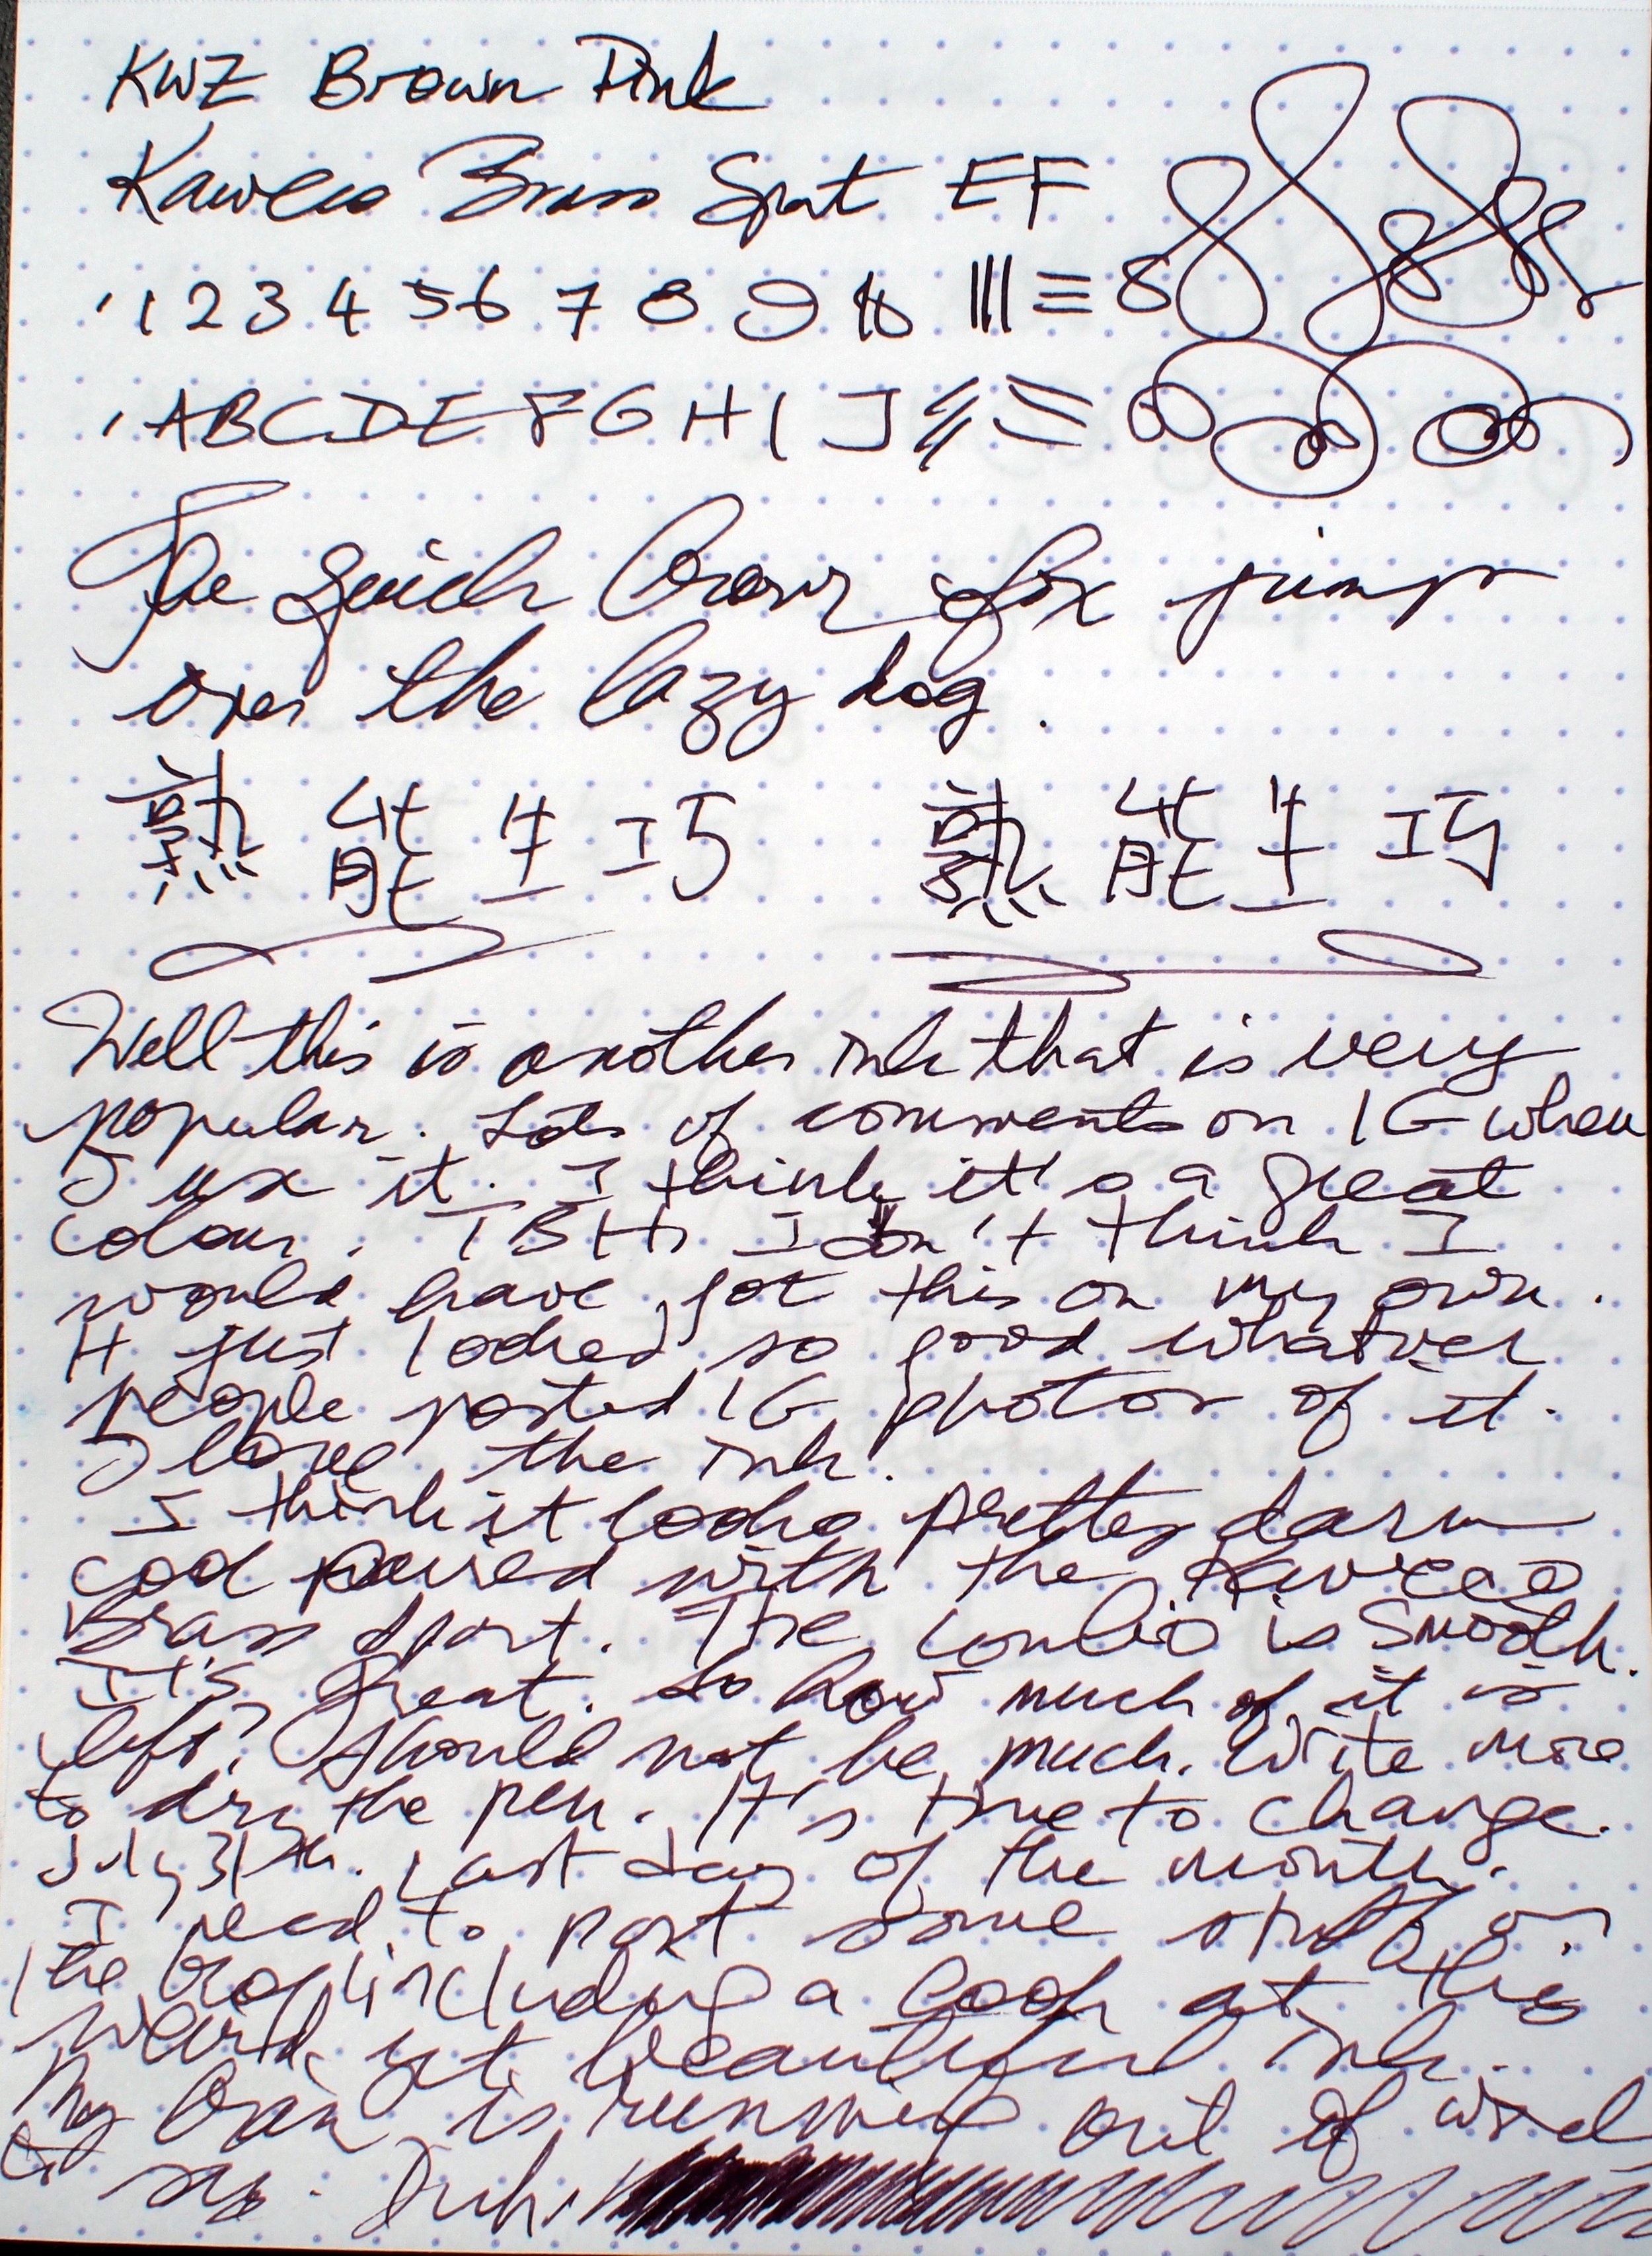 KWZ Brown Pink
Kaweco Brass Sport EF
1 2 3 4 5 6 7 8 9 10
A B C D E F G H I J
The quick brown fox jumps
over the lazy dog.
熟能生巧 熟能生巧
Well this is another ink that is very
popular. Lots of comments on IG when
I use it. I think it's a great
colour. TBH I don't think I
would have got this on my own.
It just looked so good whatver
people posted IG photos of it.
I love the ink.
I think it looks pretty darn
cool paired with the Kaweco
Brass Sport. The combo is smooth.
It's great. So how much of it is
left? Should not be much. Write more
to dry the pen. It's time to change.
July 31th. Last day of the month.
I need to post some stuff on
the blog including a look at this
weird yet beautiful ink.
My brain is running out of word
to say.